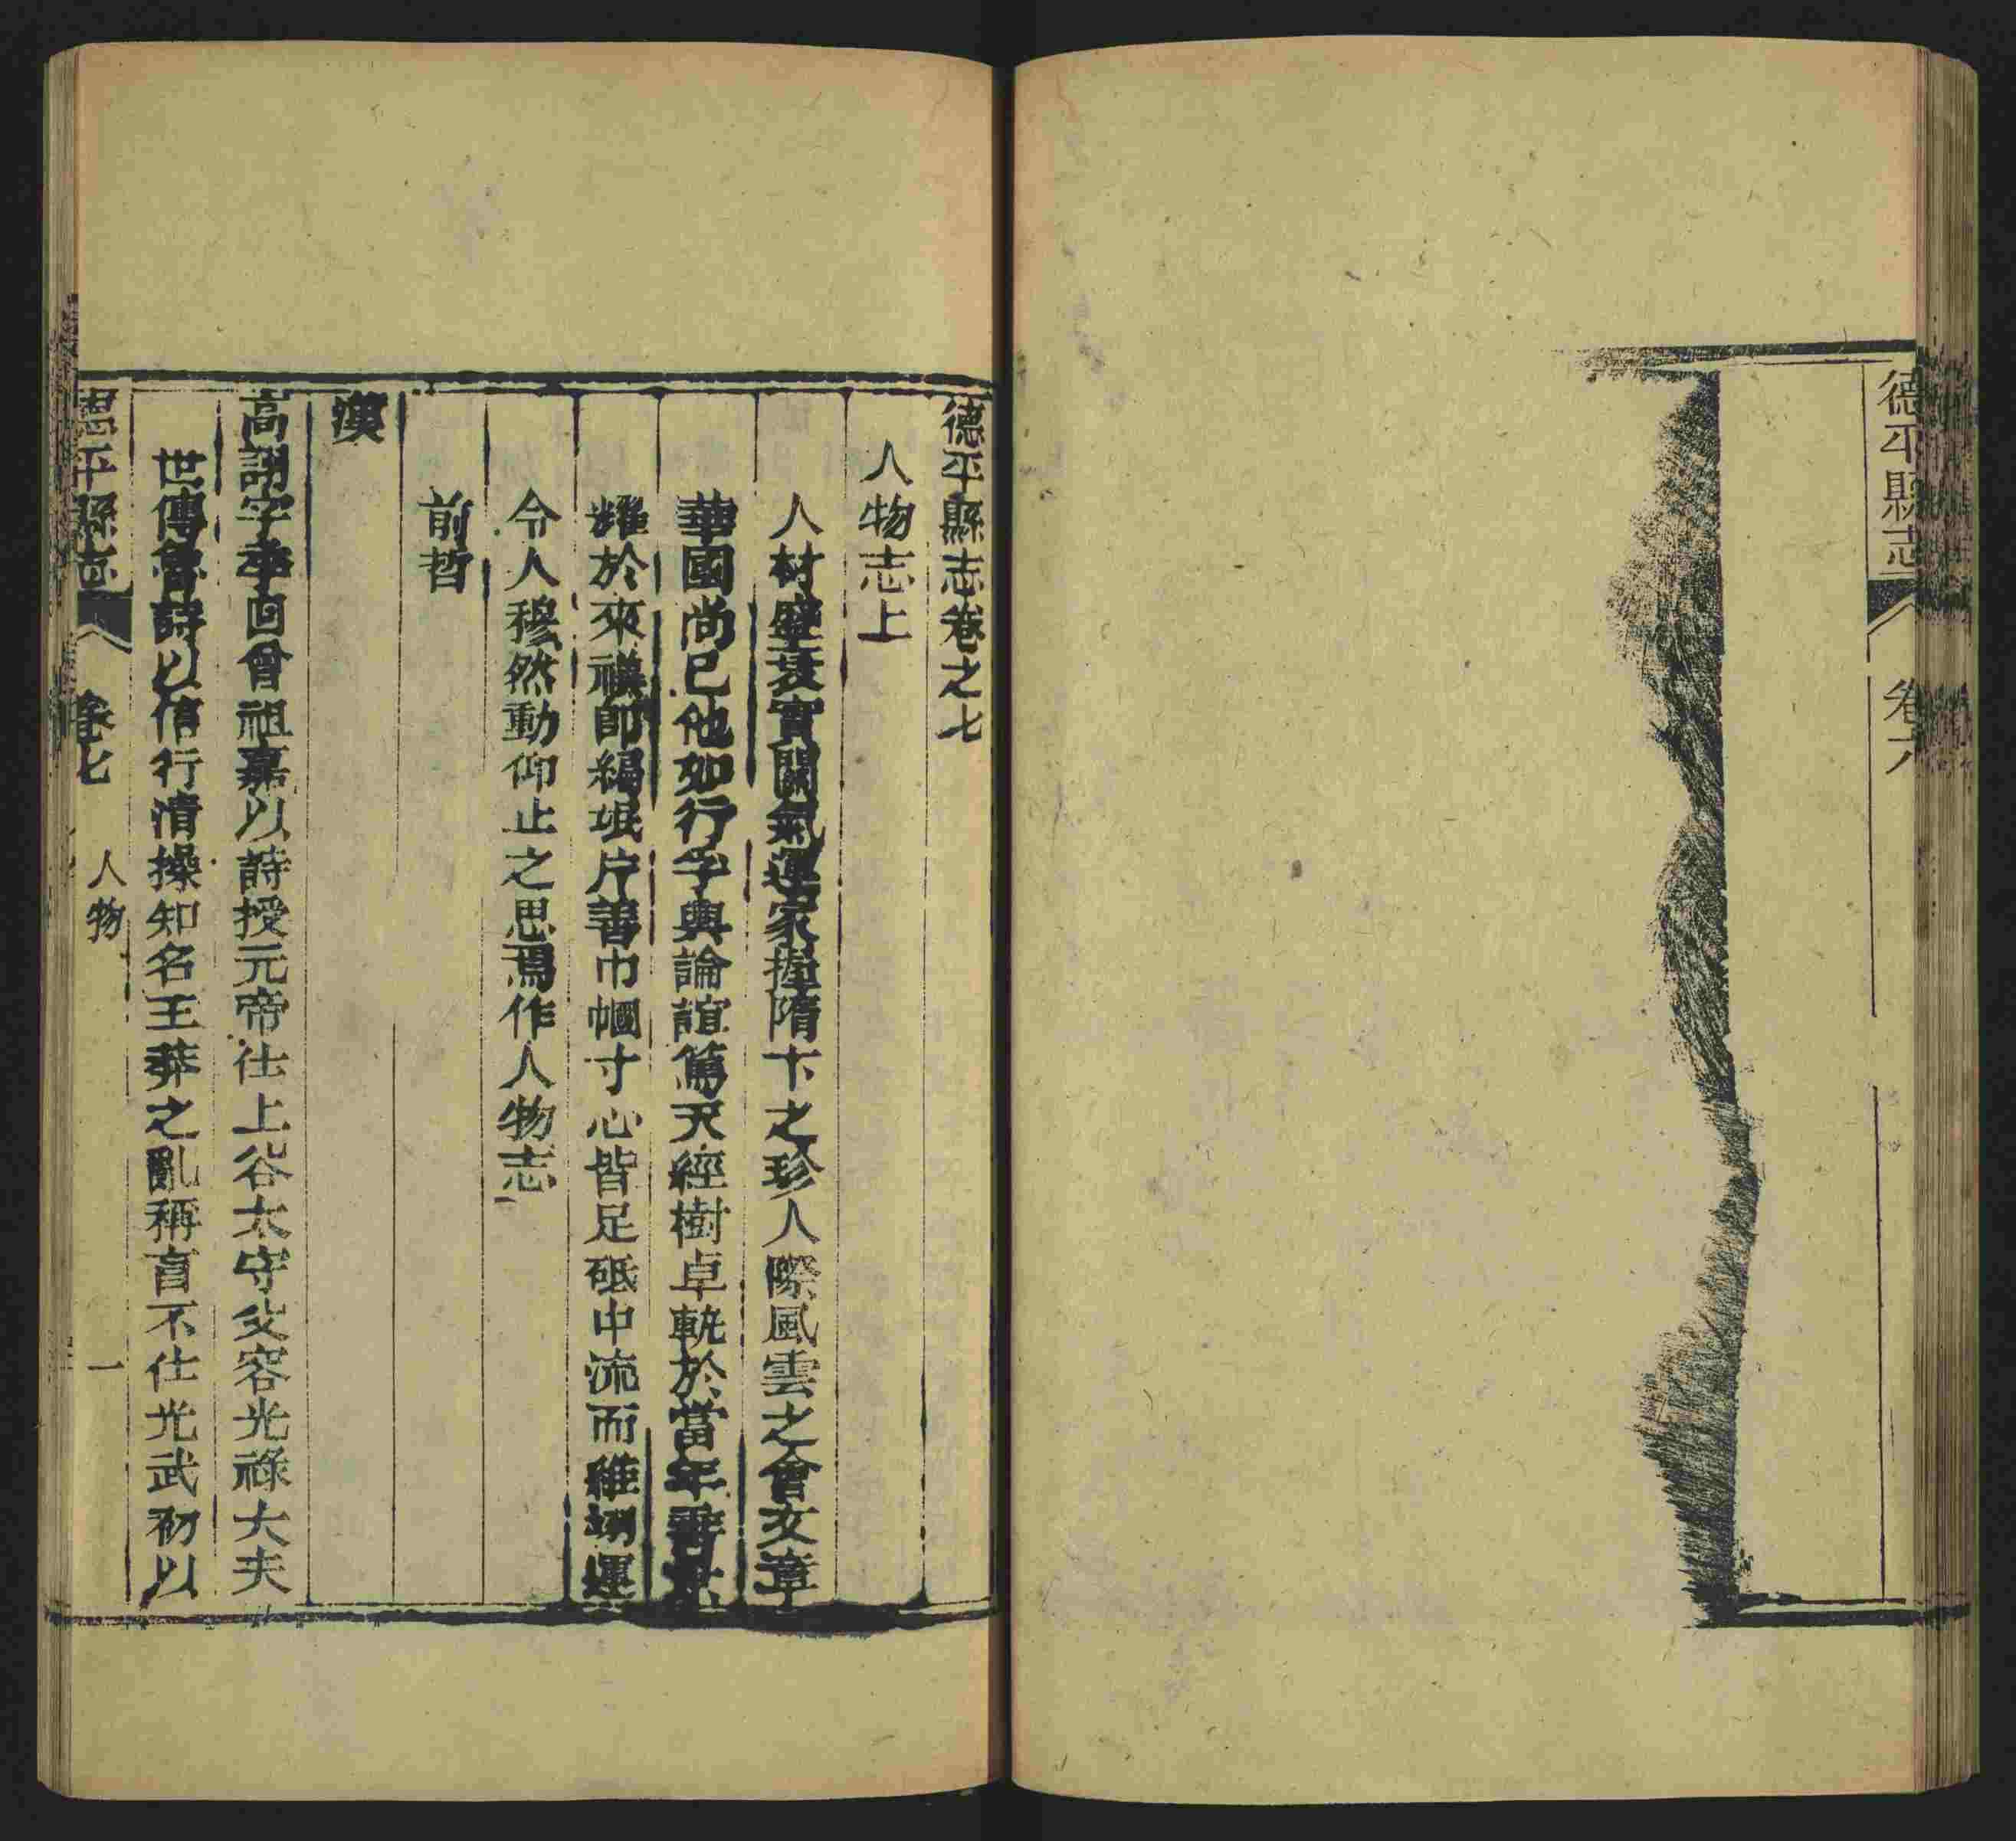 德平縣志
卷六
德平縣志卷之七
人物志上
人材盛衰實關氣運家握隋卞之珍人際風雲之會文章
華國尚已他如行孚輿論誼篤天經樹卓軌於當年
於來禩即編氓片善巾幗寸心皆足砥中流而維翊運
令人穆然動仰止之思焉作人物志
前哲
漢
高詡字季回曾祖嘉以詩授元帝仕上谷太守父容光祿大夫
世傳魯詩以信行清操知名王莽之亂稱盲不仕光武初以
德平縣志
卷七
人物
一